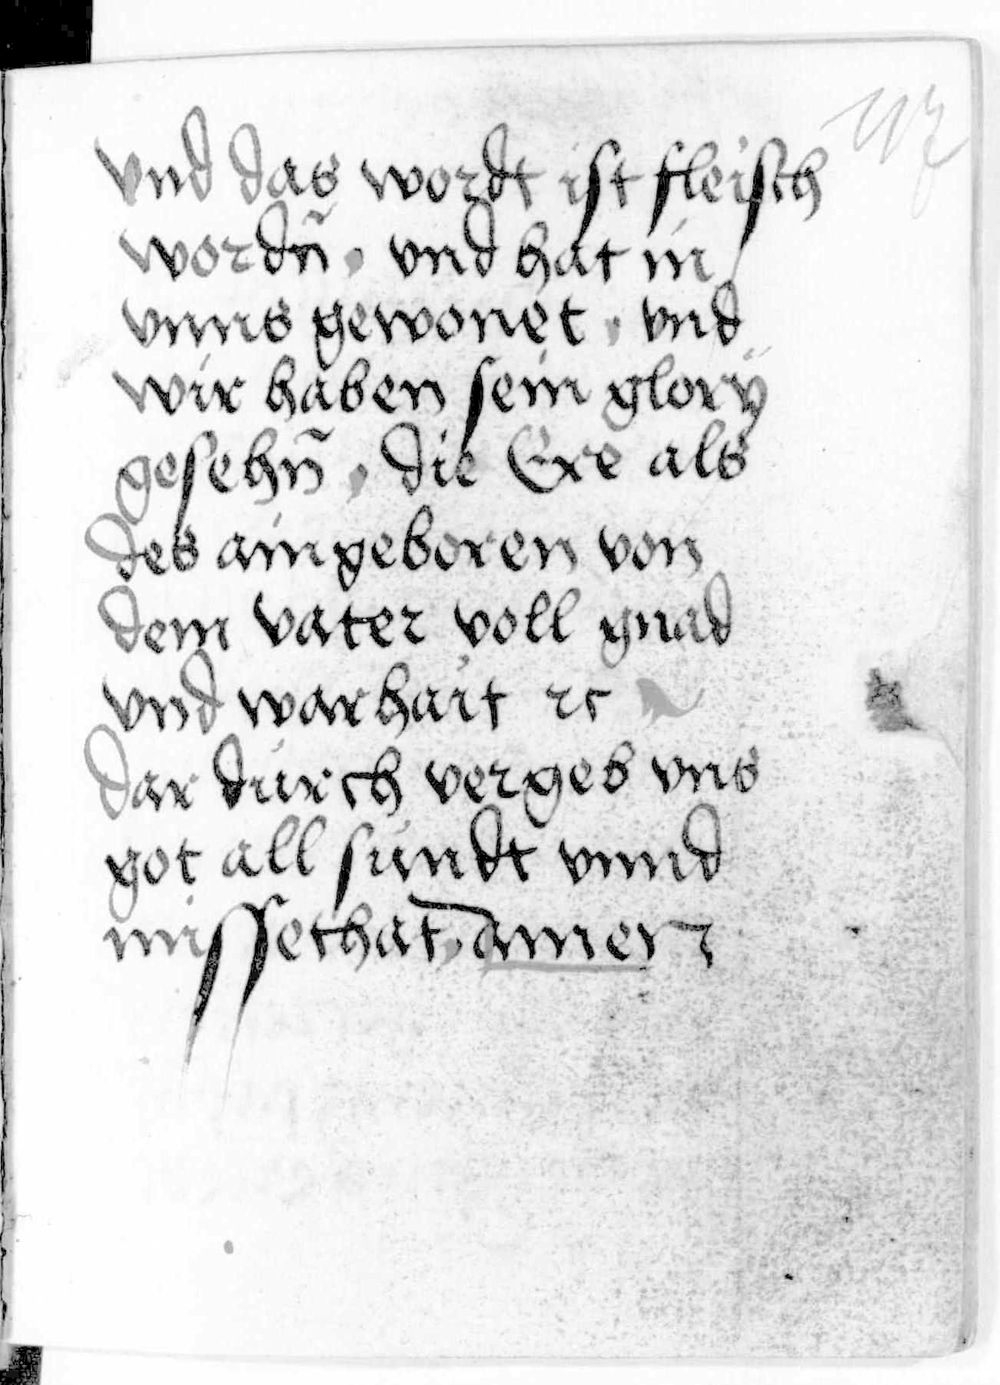 vnd das wordt ist fleisch
wordn̄ . vnd hat in
vnns gewonet . vnd
wir haben sein glorÿ
gesehn̄ . die Ere als
des aingeboren von
dem vater voll gnad
vnd warhait ꝛc
dar durch vergeb vns
got all sündt vnnd
missethat . amen